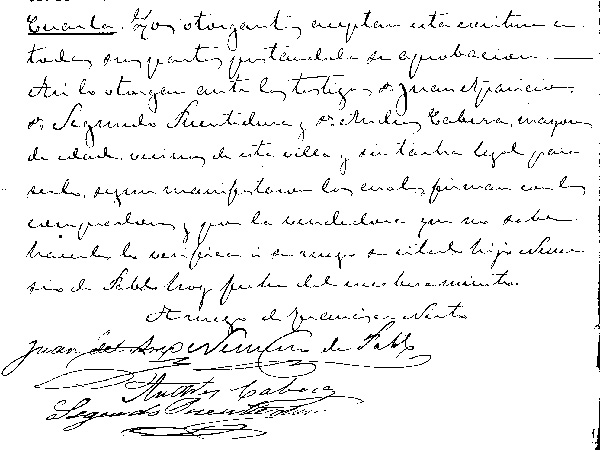 Cuarta. Los otorgantes aceptan esta escritura en
todas sus partes prestándola su aprobacion.
Asi lo otorgan ante los testigos Dn. Juan Aparicio
Dn. Segundo Fuentidura y Dn. Andres Cabeza, mayores
de edad, vecinos de esta villa y sin tacha legal para
serlo, segun manifestaron los cuales firman con los
compradores y por la vendedora que no sabe
hacerlo lo verifica á su ruego su citado hijo Neme
sio de Pablo hoy fecha del
A ruego de Francisca
Juan Nemesio de Pablo
Andres Cabeza
Segundo Fuentidura